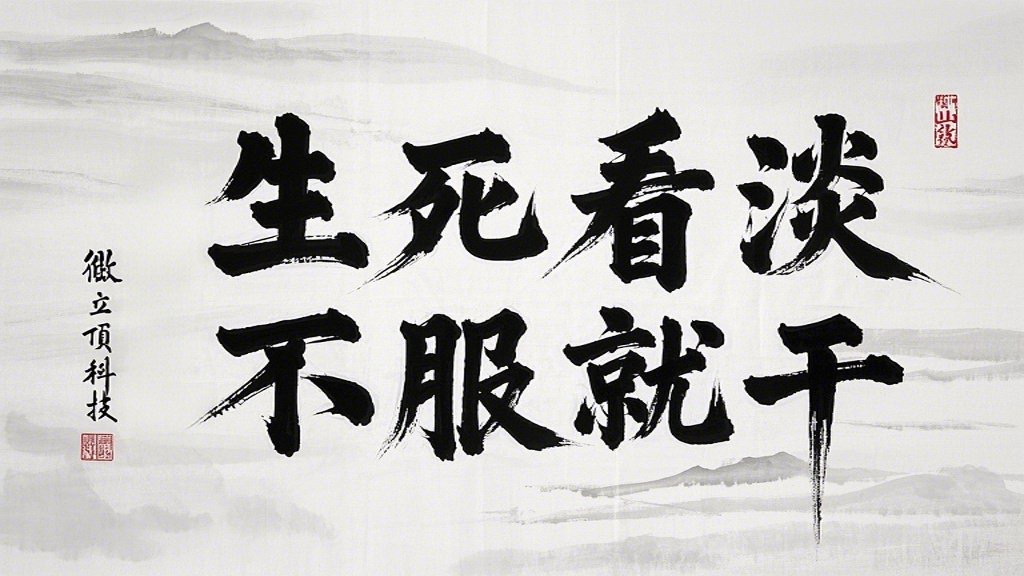 生死看淡
不服就干
立顶科技